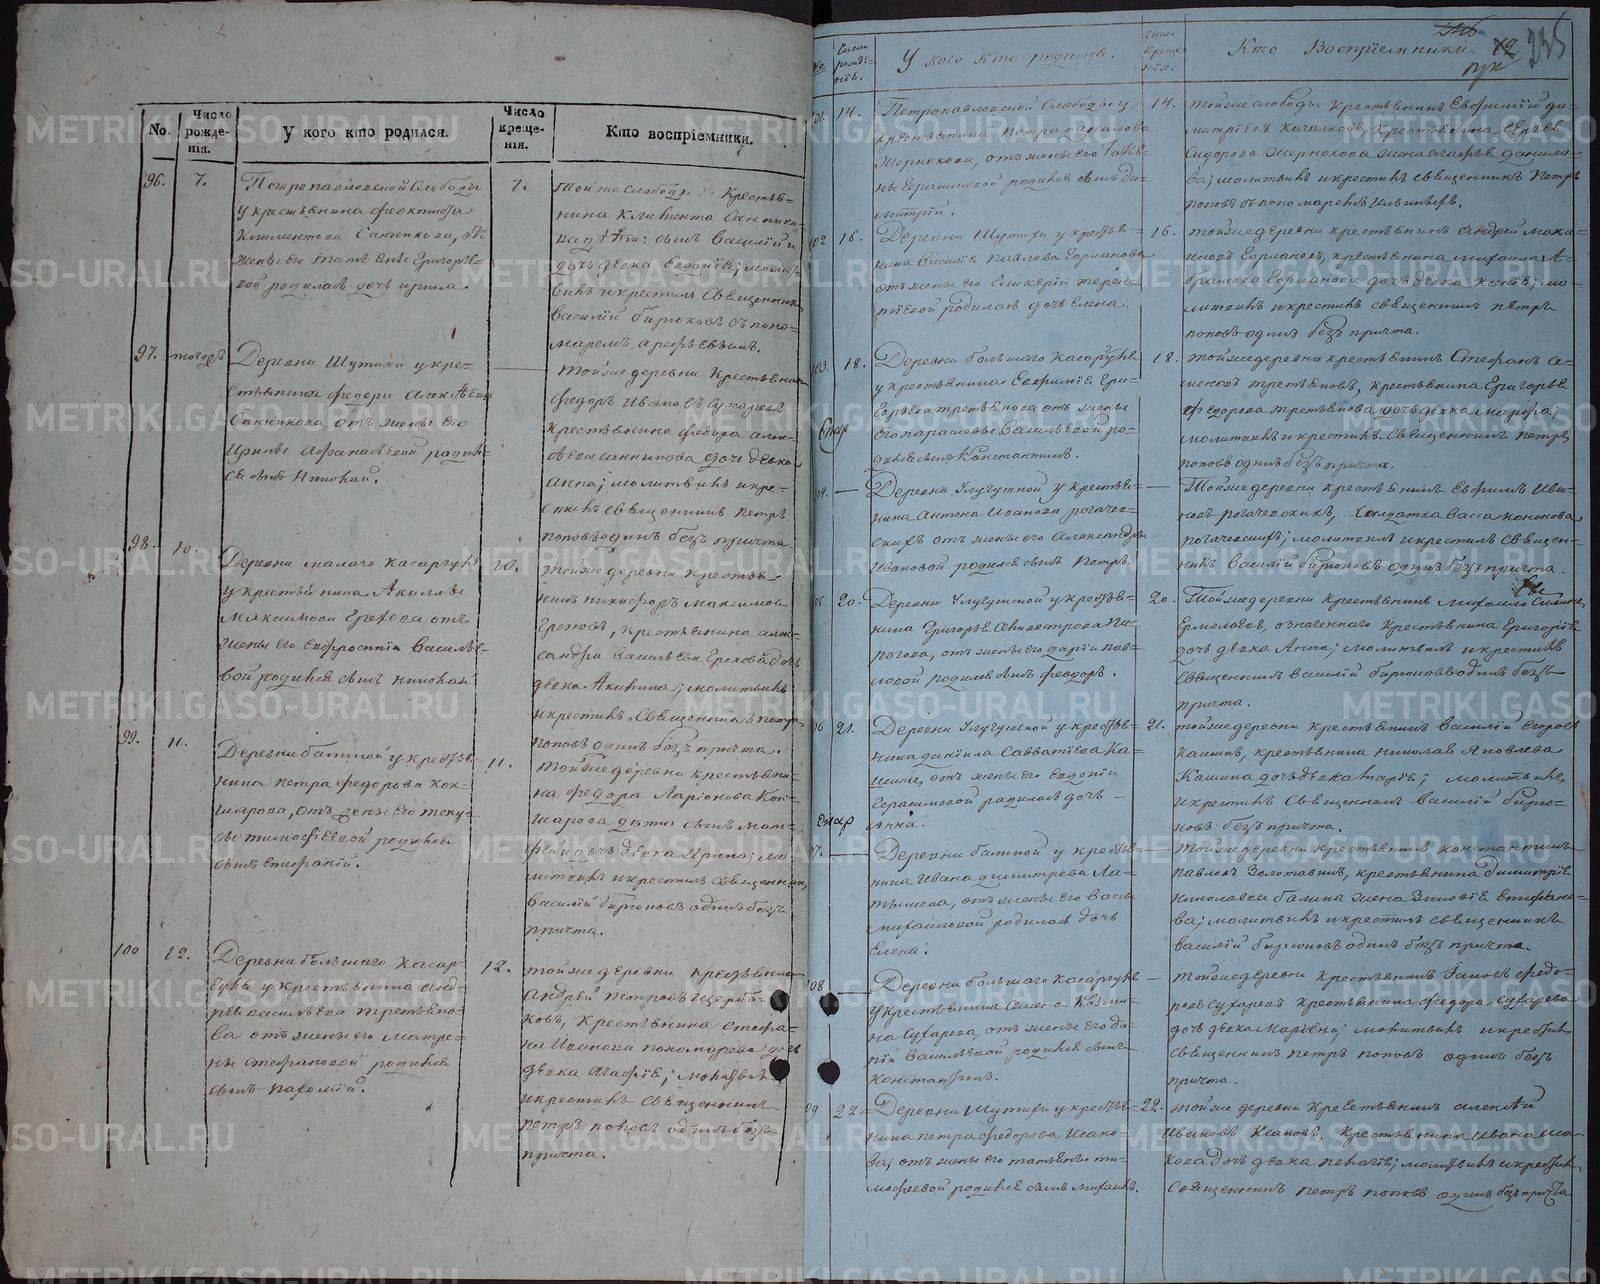 No.
Число рожде-нія.
У кого кто родился.
Число креще-нія.
Кто воспріемники.
96.
7.
Петропавловской Слободы
у крестьянина Феоктиста
Климентова Санникова, отъ
жены его
родилась дочь Ирина.
7.
Той же слободы Крестья-
нина Климента Саннико-
ва дѣти: сынъ Василій и
дочь дѣвка Евдокія; молит-
вилъ и крестилъ Священникъ
Василій Бирюковъ съ поно-
маремъ Арефьевымъ.
97.
тогожъ
Деревни Шутихи у кре-
стьянина Федора Алексѣева
Санникова, отъ жены его
Ирины Афанасьевой родил-
ся сынъ Николай.
Той же деревни Крестьянинъ
Федоръ Ивановъ Сухаревъ
крестьянина Федора Алек-
сѣева Санникова дочь дѣвка
Анна; молитвилъ и кре-
стилъ священникъ Петръ
Поповъ одинъ безъ причта.
98.
10.
Деревни малаго Касаргуля
у крестьянина
Максимова Грехова отъ
жены его Евфросиніи Василье-
вой родился сынъ Николай
10.
Той же деревни крестья-
нинъ Никифоръ Максимовъ
Греховъ, крестьянина Алек-
сандра Васильева Грехова дочь
дѣвка Акилина; молитвилъ
и крестилъ Священникъ Петръ
Поповъ одинъ безъ причта.
99.
11.
у крестья-
нина Петра Федорова Кок-
шарова, отъ жены его
Тимофѣевой родился
сынъ Стефаній.
11.
Той же деревни крестьяни-
на Федора Ларіонова Кок-
шарова дѣти сынъ Мат-
фей и дочь дѣвка Ирина; мо-
литвилъ и крестилъ Священникъ
Василій Бирюковъ одинъ безъ
причта.
100
12.
Деревни большаго Касар-
гуля у крестьянина Анд-
рея Васильева Третьяко-
ва отъ жены его Матре-
ны Стефановой родился
сынъ Пахомій.
12.
Той же деревни крестьянинъ
Андрей Петровъ Щерба-
ковъ, крестьянина Стефа-
на Иванова Пономарева дочь
дѣвка Агафія; молитвилъ
и крестилъ Священникъ
Петръ Поповъ одинъ безъ
причта.
235
No.
Число рожде-нія.
У кого кто родился.
Число креще-нія.
Кто Воспріемники
14.
Петропавловской Слободы у
крестьянина Петра Данилова
Чернокова, отъ жены его Татья-
ны Герасимовой родился сынъ Ди-
митрій.
14.
Той же слободы крестьянинъ Евфимій Ди-
митріевъ Качалковъ, крестьянина
Сидорова Чернокова жена Агафья Данило-
ва; молитвилъ и крестилъ священникъ Петръ
Поповъ съ пономаремъ
102
16.
Деревни Шутихи у крестья-
нина Василія Павлова Ерманова
отъ жены его Гликеріи Терен-
тіевой родилась дочь Елена.
16.
Той же деревни крестьянинъ Андрей
Ермановъ, крестьянина Михаила А-
брамова Ерманова дочь дѣвка Ксенія; мо-
литвилъ и крестилъ священникъ Петръ
Поповъ одинъ безъ причта.
103.
18.
Деревни большаго Касаргуля
у крестьянина Евфимія Гри-
горьева Третьякова отъ жены
его Парасковьи Васильевой ро-
дился сынъ Константинъ.
18.
Той же деревни крестьянинъ Стефанъ
Третьяковъ, крестьянина Григорья
Федорова Третьякова дочь дѣвка Марфа;
молитвилъ и крестилъ Священникъ Петръ
Поповъ одинъ безъ причта.
04.
Деревни Улугушской у крестья-
нина Антона Иванова Рогачев-
скихъ отъ жены его Александры
Ивановой родился сынъ Петръ.
Той же деревни крестьянинъ Ефимъ Ива-
новъ Рогачевскихъ, солдатка Васса Кононова
Рогачевскихъ; молитвилъ и крестилъ Священ-
никъ Василій Бирюковъ одинъ безъ причта.
05
20.
Деревни Улугушской у крестья-
нина Григорья Селиверстрова Пи-
рогова, отъ жены его Даріи Пав-
ловой родился сынъ Феодоръ.
20.
Той же деревни крестьянинъ Михайло
Ермолаевъ, означеннаго крестьянина Григорія
дочь дѣвка Анна; молитвилъ и крестилъ
Священникъ Василій Бирюковъ одинъ безъ
причта.
06
21.
Деревни Улугушской у крестья-
нина Даніила Савватіева Ка-
шина, отъ жены его Евдокіи
Герасимовой родилась дочь
Анна.
21.
Той же деревни крестьянинъ Василій Егоровъ
Кашинъ, крестьянина Николая Яковлева
Кашина дочь дѣвка Марія; молитвилъ
и крестилъ Священникъ Василій Бирю-
ковъ безъ причта.
07.
у крестья-
нина Ивана Димитрева Ла-
тышева, отъ жены его Вассы
Михайловой родилась дочь
Елена.
Той же деревни крестьянинъ Константинъ
Павловъ Золотавинъ, крестьянина Димитрія
Николаева Галина жена Зиновія Епифано-
ва; молитвилъ и крестилъ священникъ
Василій Бирюковъ одинъ безъ причта.
08
Деревни большаго Касаргуля
у крестьянина Семена Козми-
на Сухарева, отъ жены его Да-
ріи Васильевой родился сынъ
Константинъ.
Той же деревни крестьянинъ Федо-
ровъ Сухаревъ крестьянина Федора Сухарева
дочь дѣвка; молитвилъ и крестилъ
Священникъ Петръ Поповъ одинъ безъ
причта.
09
22.
Деревни Шутихи у крестья-
нина Петра Федорова Исако-
ва, отъ жены его Татьяны Ти-
мофеевой родился сынъ Михаилъ.
22.
Той же деревни Крестьянинъ Алексѣй
Ивановъ Исаковъ, Крестьянина Ивана Иса-
кова дочь дѣвка Пелагія; молитвилъ и крестилъ
Священникъ Петръ Поповъ одинъ безъ причта
METRIKI.GASO-URAL.RU